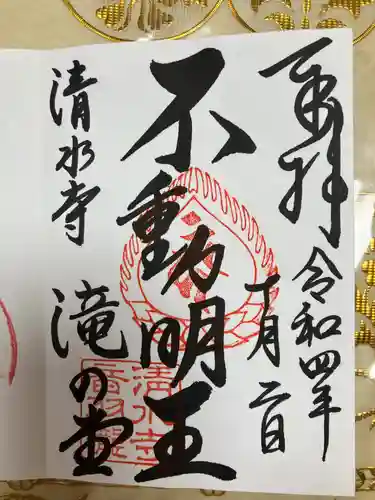 奉拝
令和四年
十月二日
不動明王
清水寺
滝の堂
清水寺
音羽瀧